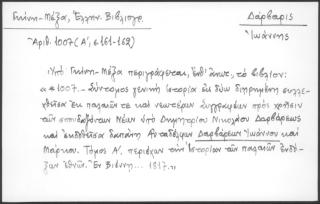 Γκίνη-Μέξα, Ἑλλην. Βιβλιογρ.
Δάρβαρις
Ἰωάννης
Ἀριθ. 1007 (Α', σ. 161-162)
Ὑπὸ Γκίνη-Μέξα περιγράφεται, ἔνθ' ἀνωτ., τὸ βιβλίον:
α* 1007.- Σύντομος γενικὴ ἱστορία εἰς δύω διῃρημένη συλλε-
χθεῖσα ἐκ παλαιῶν τε καὶ νεωτέρων συγγραφέων πρὸς χρῆσιν
τῶν σπουδαζόντων Νέων ὑπὸ Δημητρίου Νικολάου Δαρβάρεως
καὶ ἐκδοθεῖσα δαπάνῃ Αὐταδέλφων Δαρβάρεων Ἰωάννου καὶ
Μάρκου. Τόμος Α', περιέχων τὴν Ἱστορίαν τῶν παλαιῶν ἐνδό-
ξων ἐθνῶν. Ἐν Βιέννῃ... 1817.,,